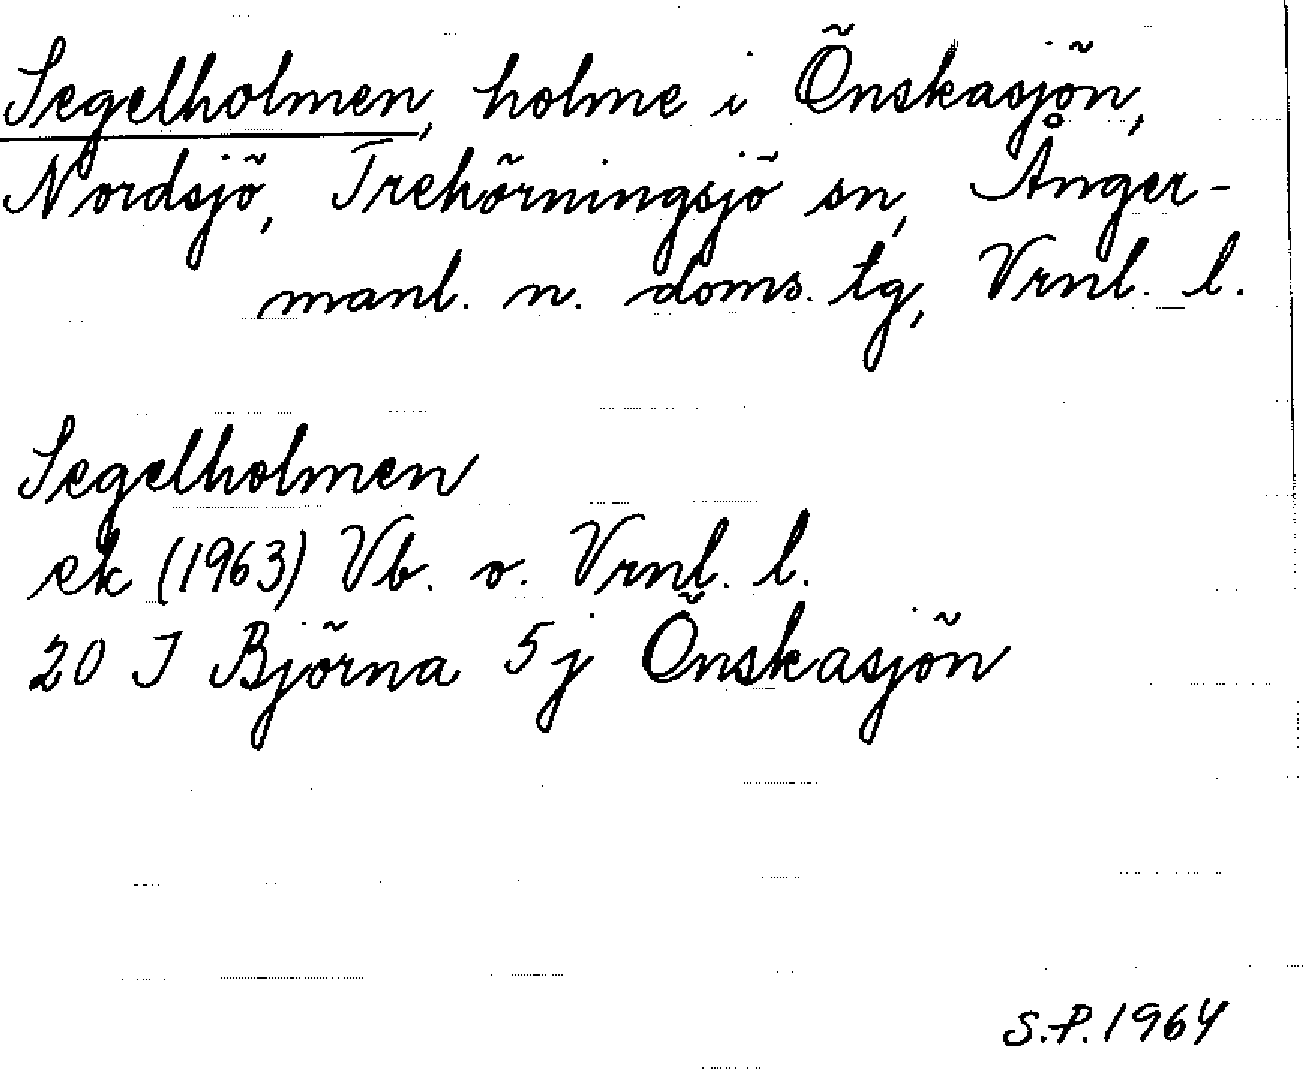 Segelholmen, holme i Önskasjön,
Nordsjö, Trehörningsjö sn, Ånger-
manl. n. doms. tg, Vrnl. l.
Segelholmen
ek (1963) Vb. o. Vrnl. l.
20 I Björna 5j Önskasjön
S.P. 1964